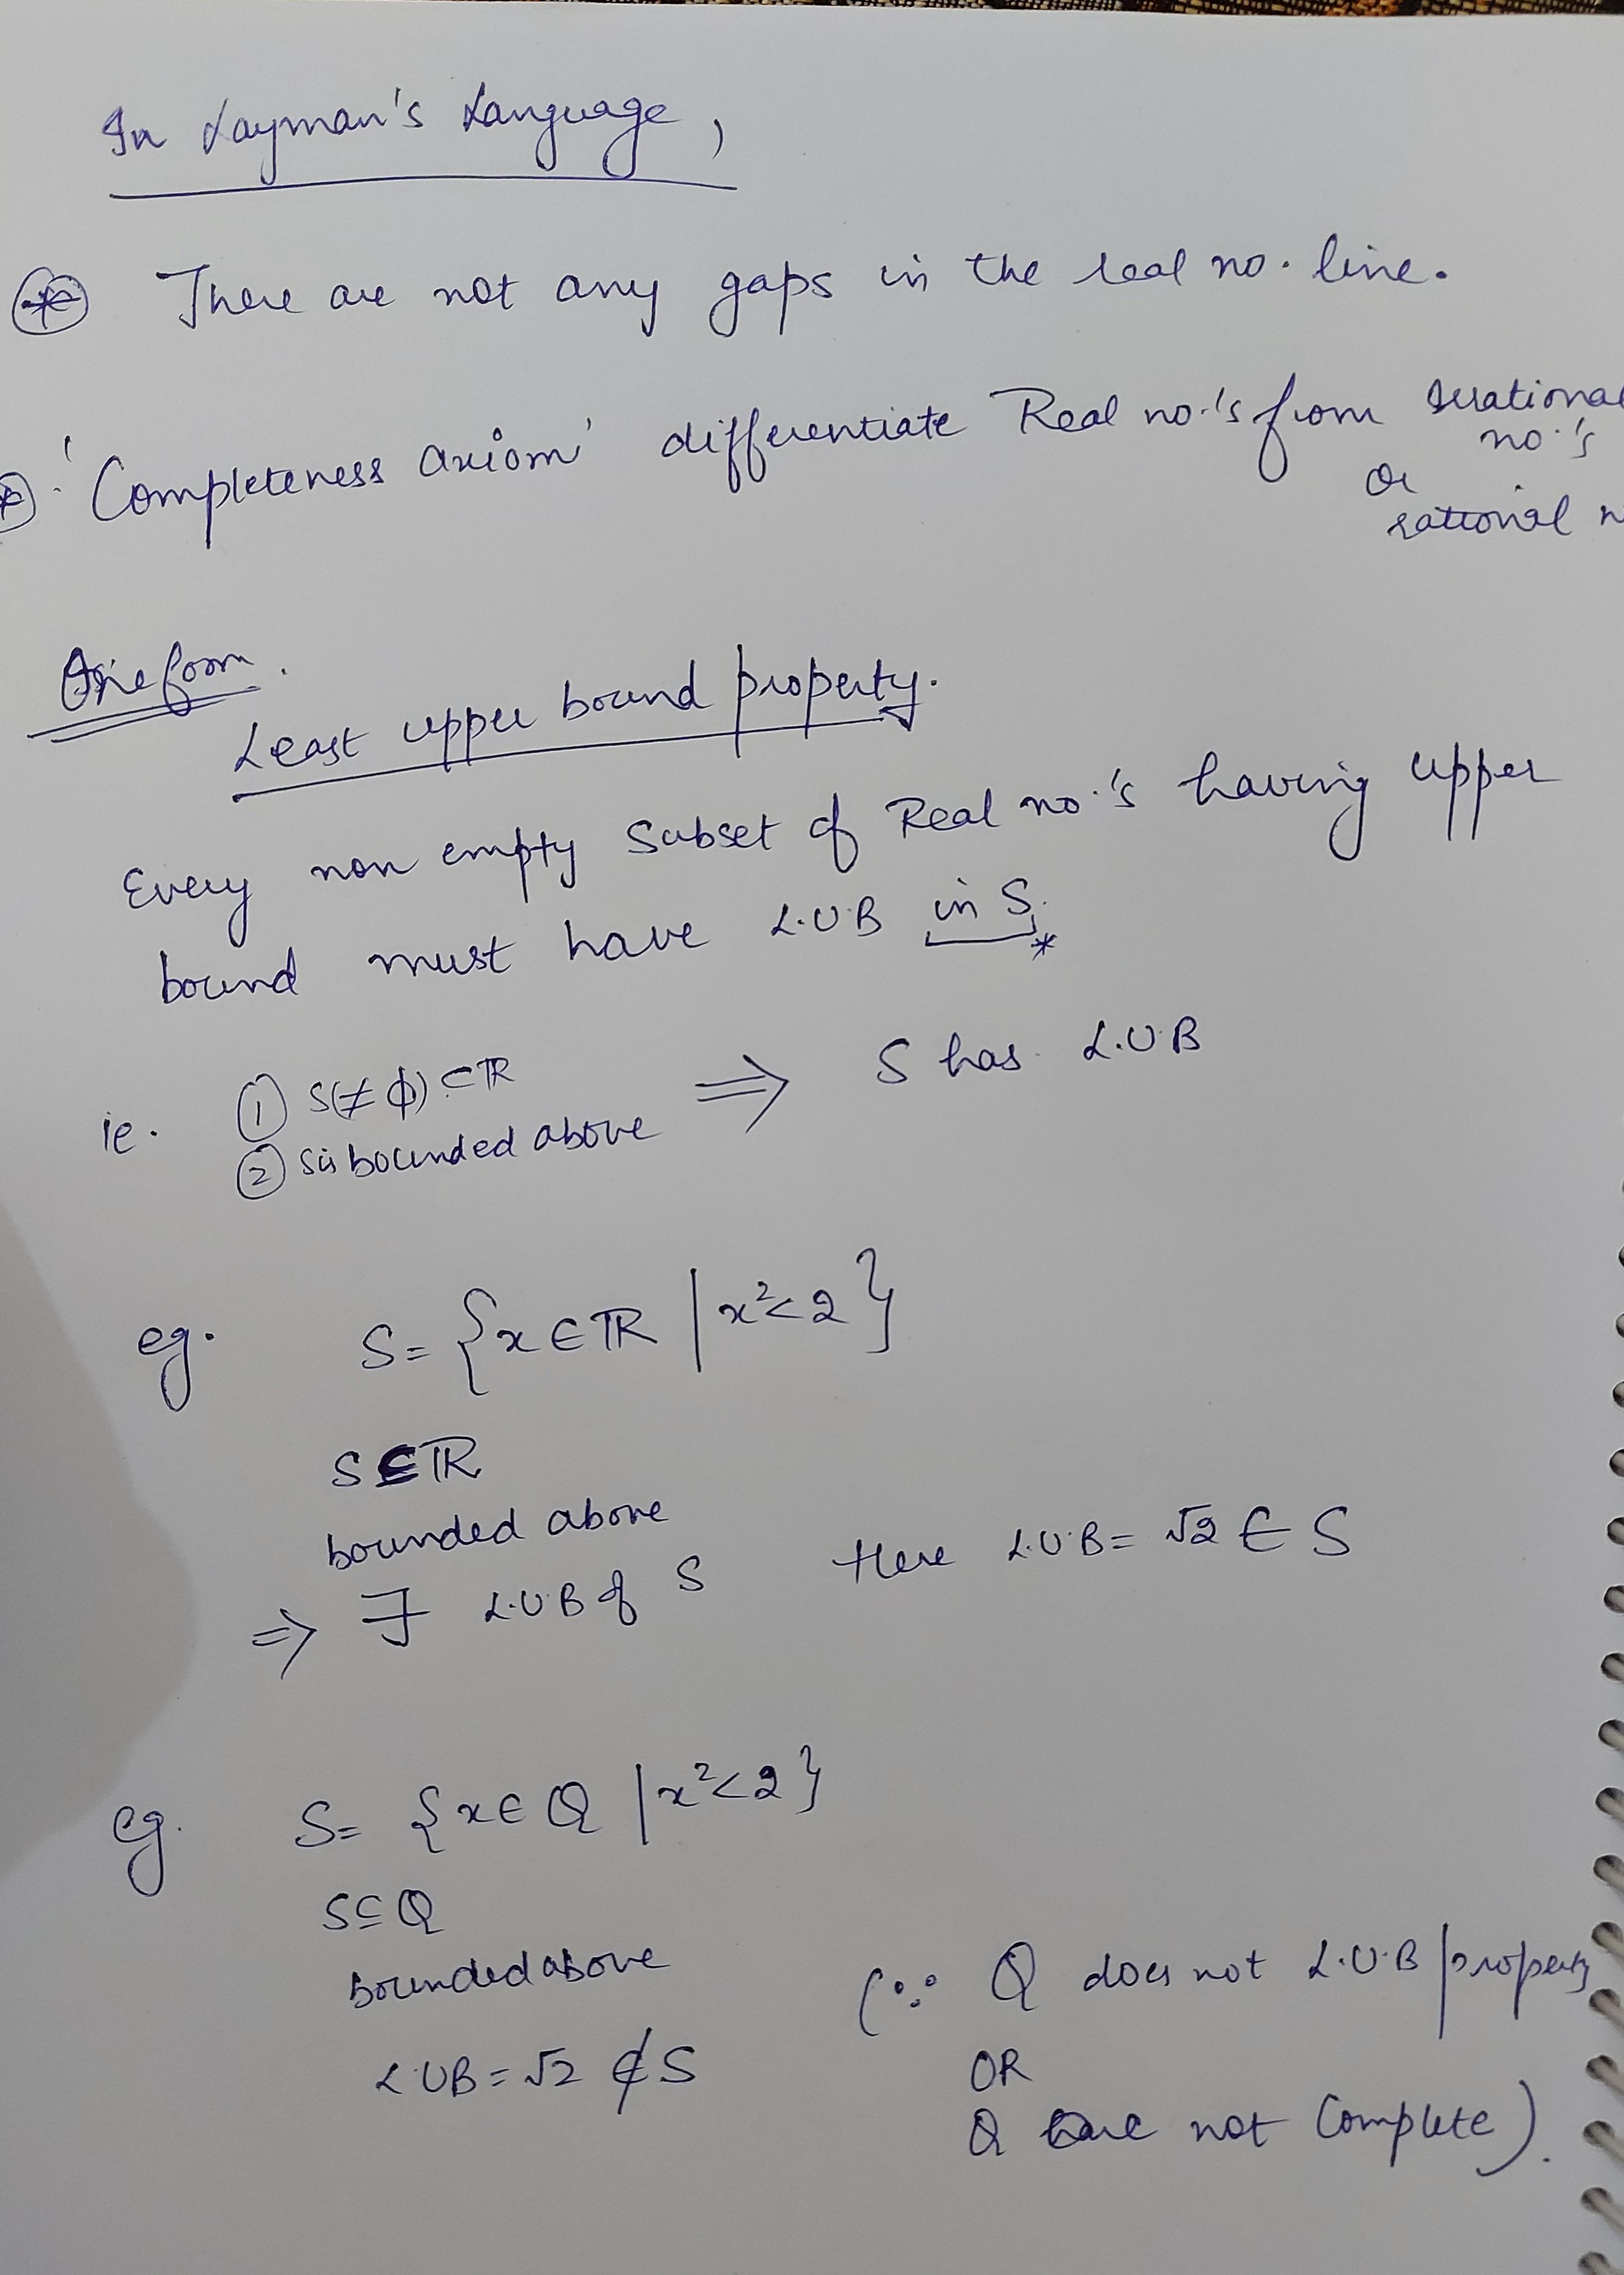 In Layman's Language,
There are not any gaps in the real no. line.
'Completeness axiom' differentiate Real no.'s from Irrational no.'s
or
rational n
One form.
Least upper bound property.
Every non empty subset of Real no.'s having upper
bound must have L.U.B in S. *
ie. ① S(≠ ϕ) ⊂ ℝ ⇒ S has L.U.B
② S is bounded above
eg. S = {x ∈ ℝ | x² < 2}
S ⊆ ℝ
bounded above
⇒ ∃ L.U.B of S Here L.U.B = √2 ∈ S
eg. S = {x ∈ Q | x² < 2}
S ⊆ Q
bounded above (∵ Q does not L.U.B property
OR
LUB = √2 ∉ S
Q are not Complete).